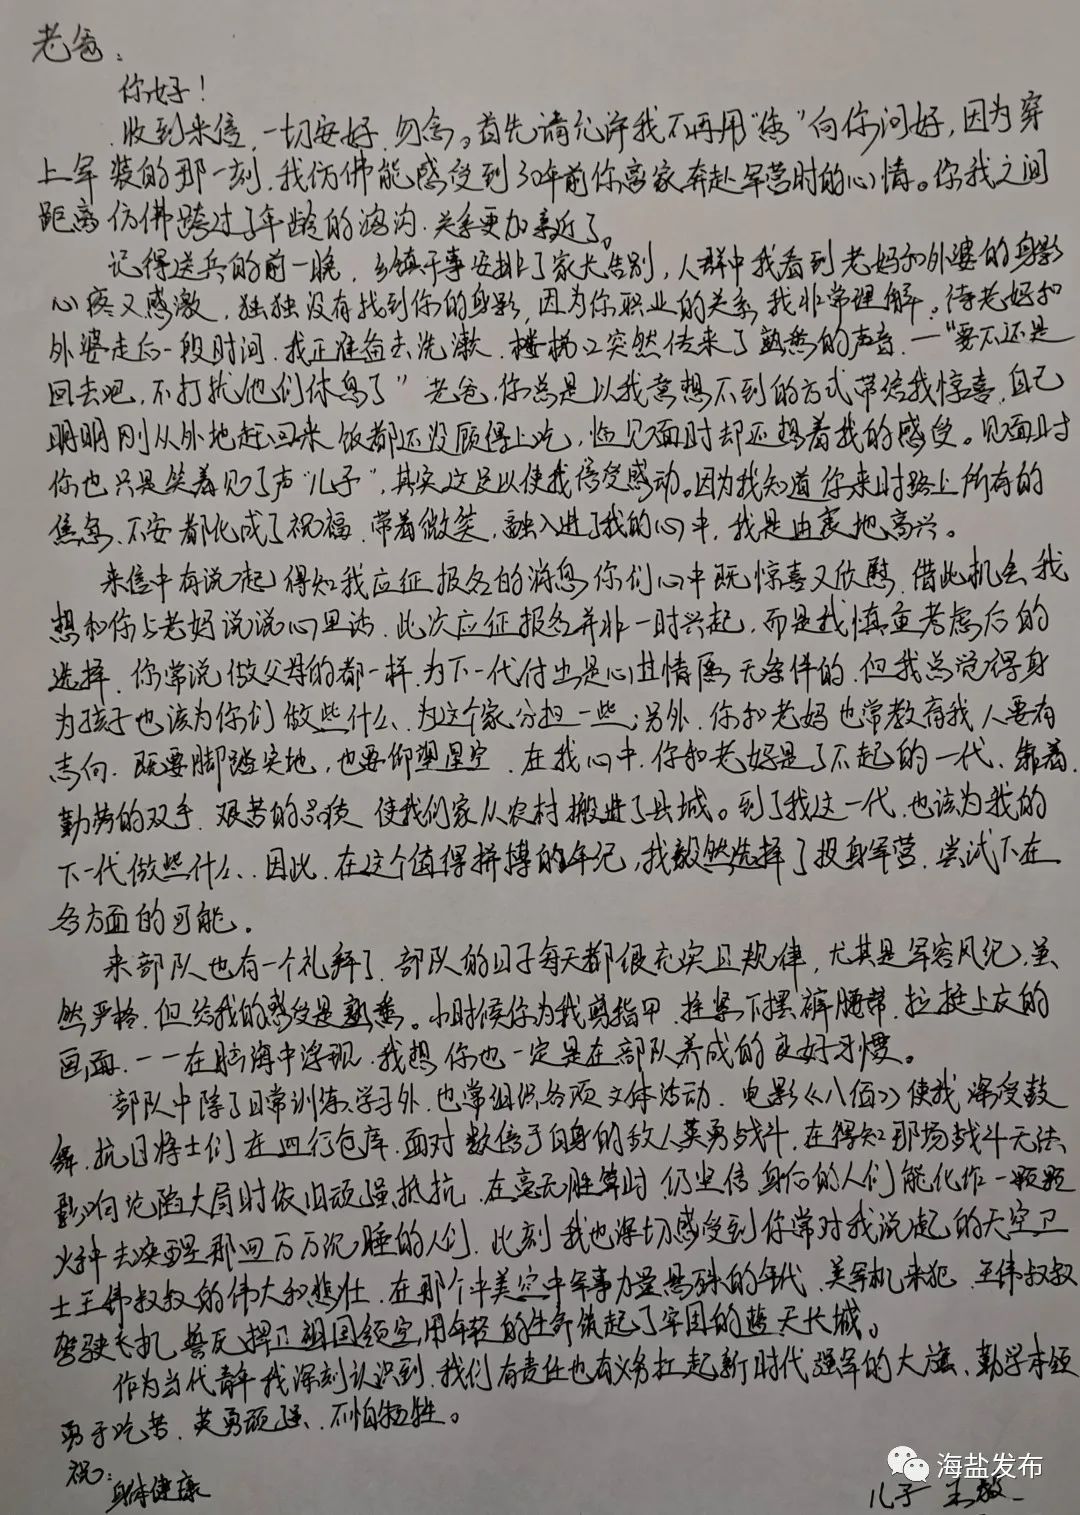 老爸：
你好！
收到来信，一切安好，勿念。首先请允许我不再用“您”向你问好，因为穿
上军装的那一刻，我仿佛能感受到30年前你离家奔赴军营时的心情。你我之间
距离仿佛跨过了年龄的鸿沟，关系更加亲近了。
记得送兵的前一晚，乡镇干事安排了家长告别，人群中我看到老妈和外婆的身影
心疼又感激，独独没有找到你的身影，因为你职业的关系，我非常理解。待老妈和
外婆走后一段时间，我正准备去洗漱，楼梯口突然传来了熟悉的声音，—“要不还是
回去吧，不打扰他们休息了”老爸，你总是以我意想不到的方式带给我惊喜，自己
明明刚从外地赶回来饭都还没顾得上吃，临见面时却还想着我的感受。见面时
你也只是笑着见了声“儿子”，其实这足以使我倍受感动。因为我知道你来时路上所有的
焦急、不安都化成了祝福，带着微笑，融入进了我的心中，我是由衷地高兴。
来信中有说起得知我应征报名的消息你们心中既惊喜又欣慰，借此机会我
想和你与老妈说说心里话，此次应征报名并非一时兴起，而是我慎重考虑后的
选择，你常说做父母的都一样，为下一代付出是心甘情愿、无条件的，但我总觉得身
为孩子也该为你们做些什么，为这个家分担一些；另外，你和老妈也常教育我人要有
志向，既要脚踏实地，也要仰望星空，在我心中，你和老妈是了不起的一代，靠着
勤劳的双手、艰苦的品质，使我们家从农村搬进了县城。到了我这一代，也该为我的
下一代做些什么，因此，在这个值得拼搏的年纪，我毅然选择了投身军营，尝试下在
各方面的可能。
来部队也有一个礼拜了，部队的日子每天都很充实且规律，尤其是军容风纪，虽
然严格，但给我的感受是熟悉。小时候你为我剪指甲，拴紧下摆裤腰带，拉挺上衣的
画面，一一在脑海中浮现，我想你也一定是在部队养成的良好习惯。
部队中除了日常训练、学习外，也常组织各项文体活动，电影《八佰》使我深受鼓
舞，抗日将士们在四行仓库，面对数倍于自身的敌人英勇战斗，在得知那场战斗无法
影响沦陷大局时依旧顽强抵抗，在毫无胜算时，仍坚信身后的人们能化作一颗颗
火种去唤醒那四万万沉睡的人们，此刻我也深切感受到你常对我说起的天空卫
士王伟叔叔的伟大和悲壮，在那个中美空中军事力量悬殊的年代，美军机来犯，王伟叔叔
驾驶飞机，誓死捍卫祖国领空，用年轻的生命筑起了牢固的蓝天长城。
作为当代青年我深刻认识到，我们有责任也有义务扛起新时代强军的大旗，勤学本领
勇于吃苦，英勇顽强、不怕牺牲。
祝：
身体健康
儿子 王
海盐发布